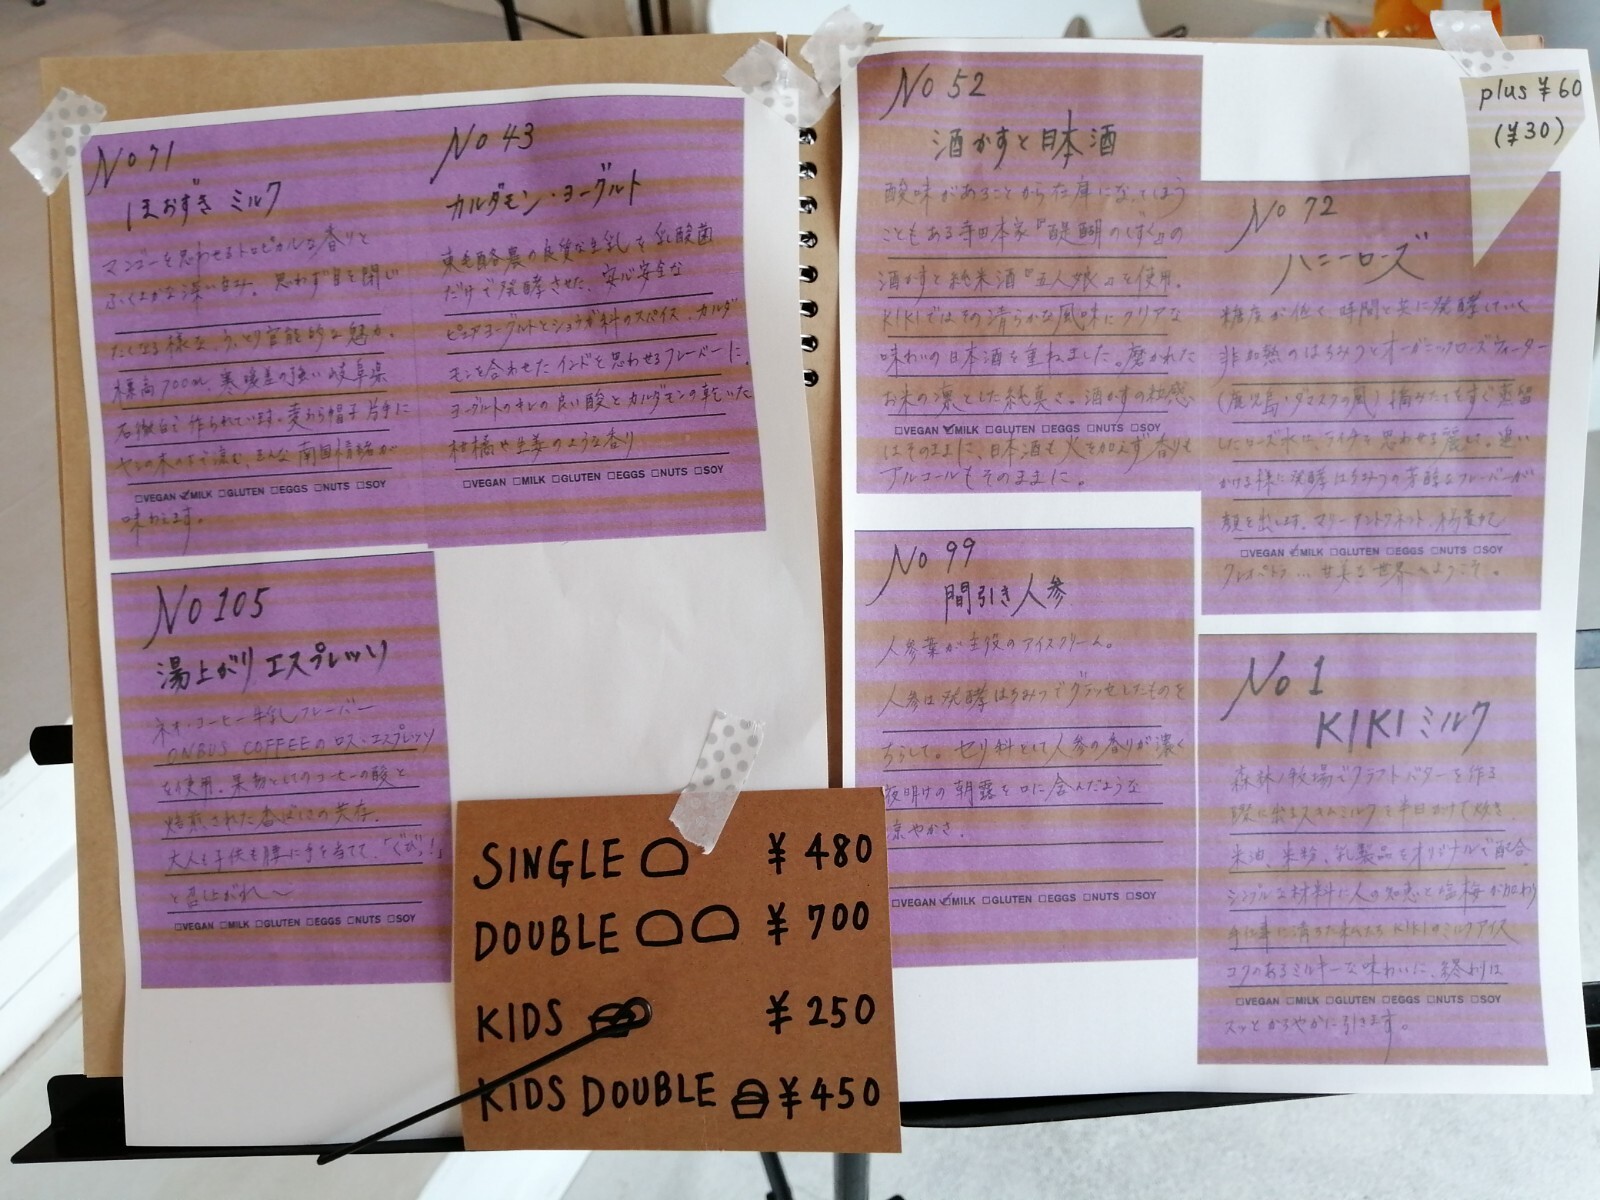 No 71
ほおずきミルク
マンゴーを思わせるトロピカルな香りと
ふくよかな深い甘み。思わず目を閉じ
たくなる様な、うっとり官能的な魅力。
標高700m 寒暖差の強い岐阜県
石徹白で作られています。麦わら帽子片手に
ヤシの木の下で涼む、そんな南国情緒が
□VEGAN ☑MILK □GLUTEN □EGGS □NUTS □SOY
味わえます。
No 43
カルダモン・ヨーグルト
東毛酪農の良質な生乳を乳酸菌
だけで発酵させた、安心安全な
ピュアヨーグルトとショウガ科のスパイス、カルダ
モンを合わせたインドを思わせるフレーバーに。
ヨーグルトのキレの良い酸とカルダモンの乾いた
柑橘や生姜のような香り
□VEGAN □MILK □GLUTEN □EGGS □NUTS □SOY
No 105
湯上がりエスプレッソ
ネオ・コーヒー牛乳フレーバー
ONIBUS COFFEEの ロス・エスプレッソ
を使用。果物としてのコーヒーの酸と
焙煎された香ばしさの共存。
大人も子供も腰に手を当てて、「くびっ!」
と召し上がれ〜
□VEGAN □MILK □GLUTEN □EGGS □NUTS □SOY
SINGLE ¥480
DOUBLE ¥700
KIDS ¥250
KIDS DOUBLE ¥450
No 52
酒かすと日本酒
酸味があることから在庫になってしまう
こともある寺田本家『醍醐のしずく』の
酒かすと純米酒『五人娘』を使用。
KIKIではその清らかな風味にクリアな
味わいの日本酒を重ねました。磨かれた
お米の凛とした純真さ。酒かすの粒感
□VEGAN ☑MILK □GLUTEN □EGGS □NUTS □SOY
はそのままに、日本酒も火を加えず香りも
アルコールもそのままに。
plus ¥60
(¥30)
No 72
ハニーローズ
糖度が低く 時間と共に発酵していく
非加熱のはちみつとオーガニックローズウォーター
(鹿児島・ダマスクの風) 摘みたてをすぐ蒸留
したローズ水は、ライチを思わせる麗しさ。追い
かける様に発酵はちみつの芳醇なフレーバーが
顔を出します。マリーアントワネット、楊貴妃、
□VEGAN ☑MILK □GLUTEN □EGGS □NUTS □SOY
クレオパトラ…甘美な世界へようこそ。
No 99
間引き人参
人参葉が主役のアイスクリーム。
人参は発酵はちみつでグラッセしたものを
ちらして。セリ科として人参の香りが濃く
夜明けの朝露を口に含んだような
涼やかさ。
□VEGAN ☑MILK □GLUTEN □EGGS □NUTS □SOY
No 1
KIKIミルク
森林ノ牧場でクラフトバターを作る
際に出るスキムミルクを半日かけて炊き、
米油、米粉、乳製品をオリジナルで配合。
シンプルな材料に人の知恵と塩梅が加わり
KIKIのミルクアイス
コクのあるミルキーな味わいに、終わりは
□VEGAN □MILK □GLUTEN □EGGS □NUTS □SOY
スッとかろやかに引きます。